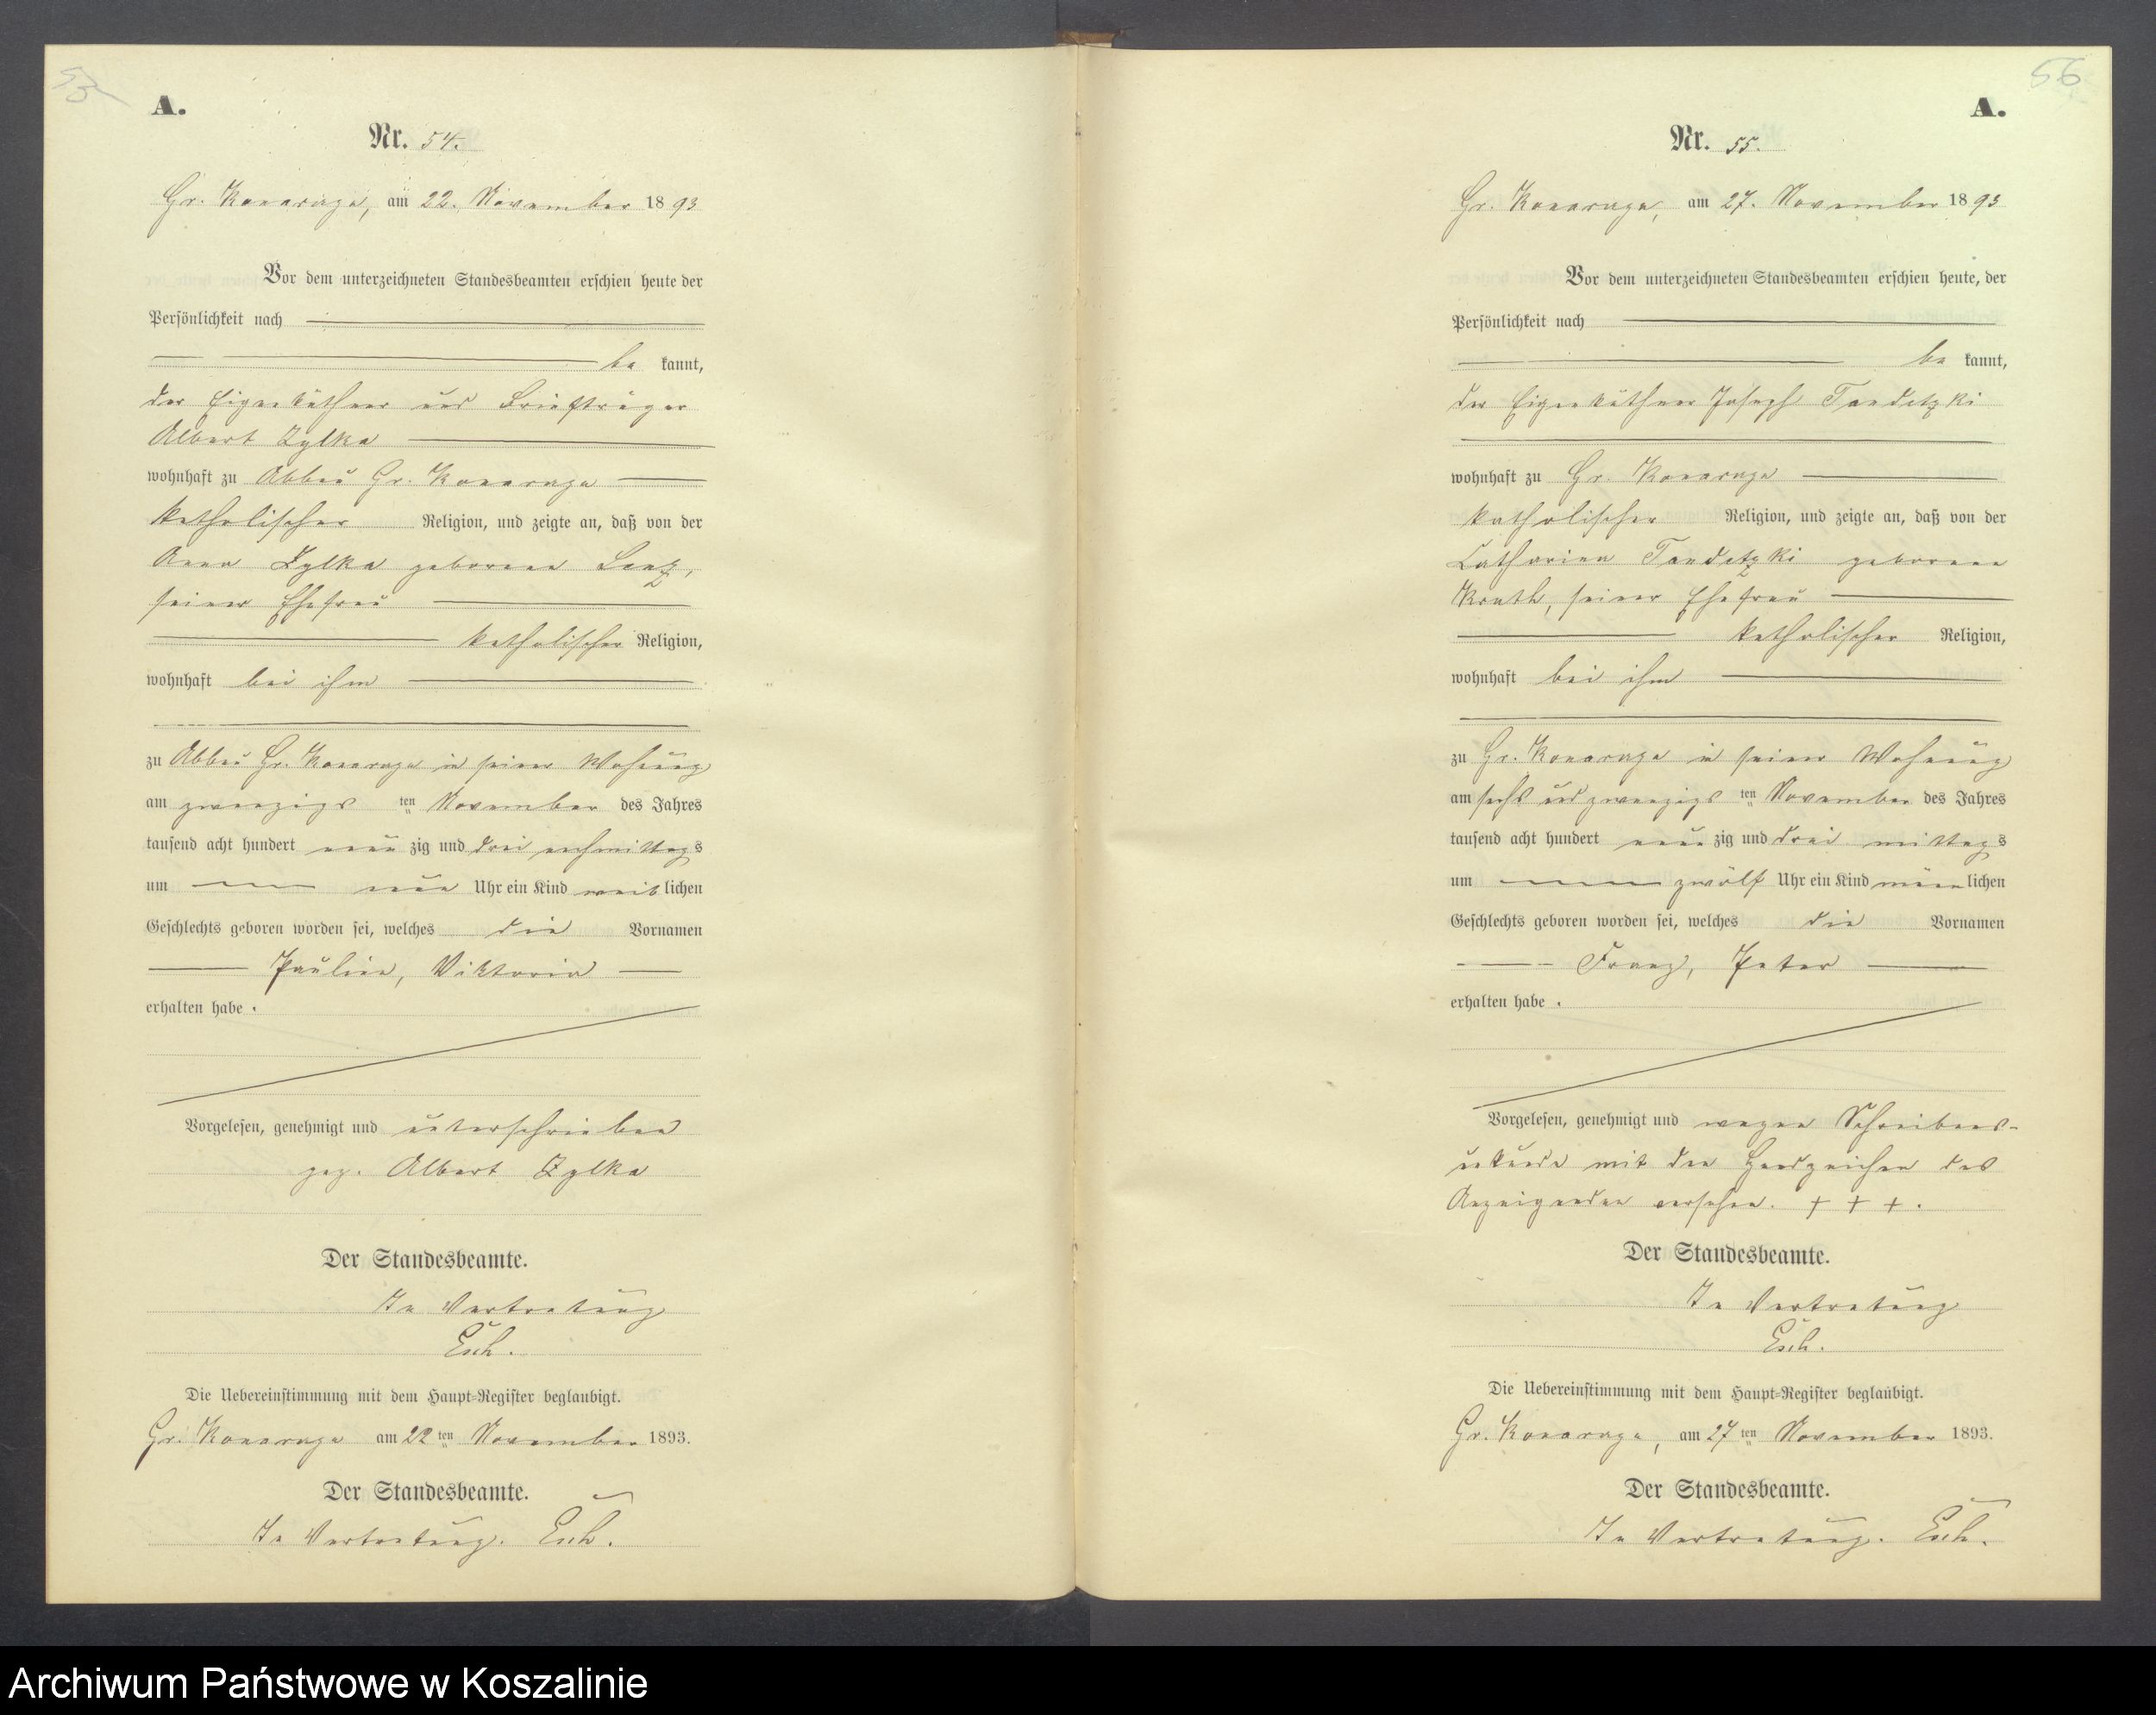 53
A.
Nr. 54.
Gr. Konarczyn, am 22. November 1893
Vor dem unterzeichneten Standesbeamten erschien heute der
Persönlichkeit nach
be kannt,
der Eigenkäthner und Briefträger
Albert Zylka
wohnhaft zu Abbau Gr. Konarczyn
katholischer Religion, und zeigte an, daß von der
Anna Zylka geborene Lenz,
seiner Ehefrau
katholischer Religion,
wohnhaft bei ihm
zu Abbau Gr. Konarczyn in seiner Wohnung
am zwanzigs ten November des Jahres
tausend acht hundert neun zig und drei nachmittags
um neun Uhr ein Kind weiblichen
Geschlechts geboren worden sei, welches die Vornamen
Pauline, Viktoria
erhalten habe.
Vorgelesen, genehmigt und unterschrieben
gez. Albert Zylka
Der Standesbeamte.
In Vertretung
Esch.
Die Uebereinstimmung mit dem Haupt-Register beglaubigt.
Gr. Konarczyn am 22 ten November 1893.
Der Standesbeamte.
In Vertretung. Esch.
56
A.
Nr. 55.
Gr. Konarczyn, am 27. November 1893
Vor dem unterzeichneten Standesbeamten erschien heute, der
Persönlichkeit nach
be kannt,
der Eigenkäthner Joseph Tandetzki
wohnhaft zu Gr. Konarczyn
katholischer Religion, und zeigte an, daß von der
Catharina Tandetzki geborene
seiner Ehefrau
katholischer Religion,
wohnhaft bei ihm
zu Gr. Konarczyn in seiner Wohnung
am sechs und zwanzigs ten November des Jahres
tausend acht hundert neun zig und drei mittags
um zwölf Uhr ein Kind männlichen
Geschlechts geboren worden sei, welches die Vornamen
Franz, Peter
erhalten habe.
Vorgelesen, genehmigt und wegen Schreibens-
unkunde mit den Handzeichen des
Anzeigenden versehen. + + +.
Der Standesbeamte.
In Vertretung
Esch.
Die Uebereinstimmung mit dem Haupt-Register beglaubigt.
Gr. Konarczyn, am 27 ten November 1893.
Der Standesbeamte.
In Vertretung. Esch.
Archiwum Państwowe w Koszalinie